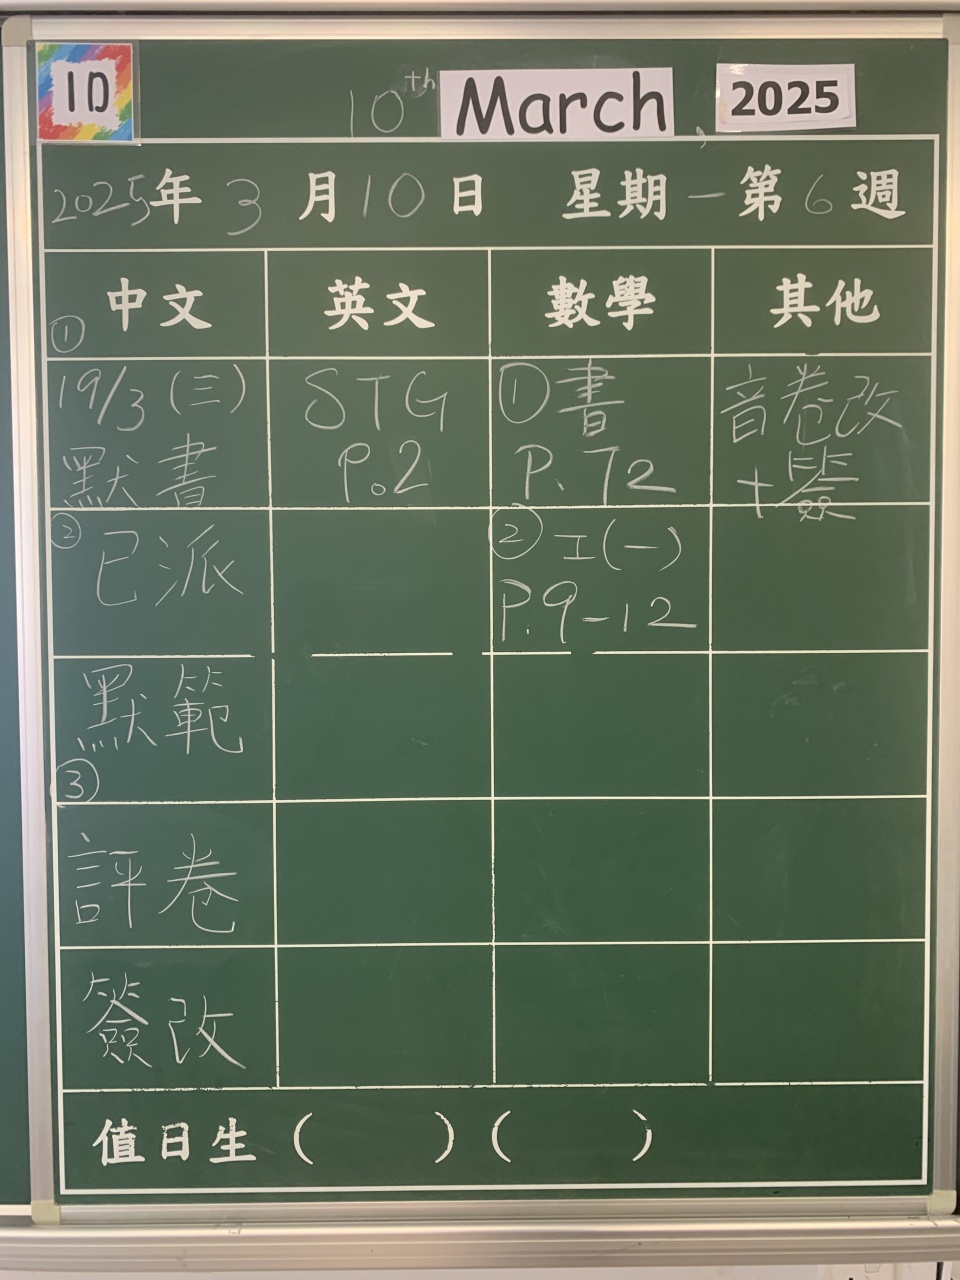 1D
10th March, 2025
2025年3月10日 星期一 第6週
中文 英文 數學 其他
①
19/3(三)
默書
②
已派
默範
③
評卷
簽改
STG
P.2
①書
P.72
②工(一)
P.9-12
音卷改
+簽
值日生( )( )